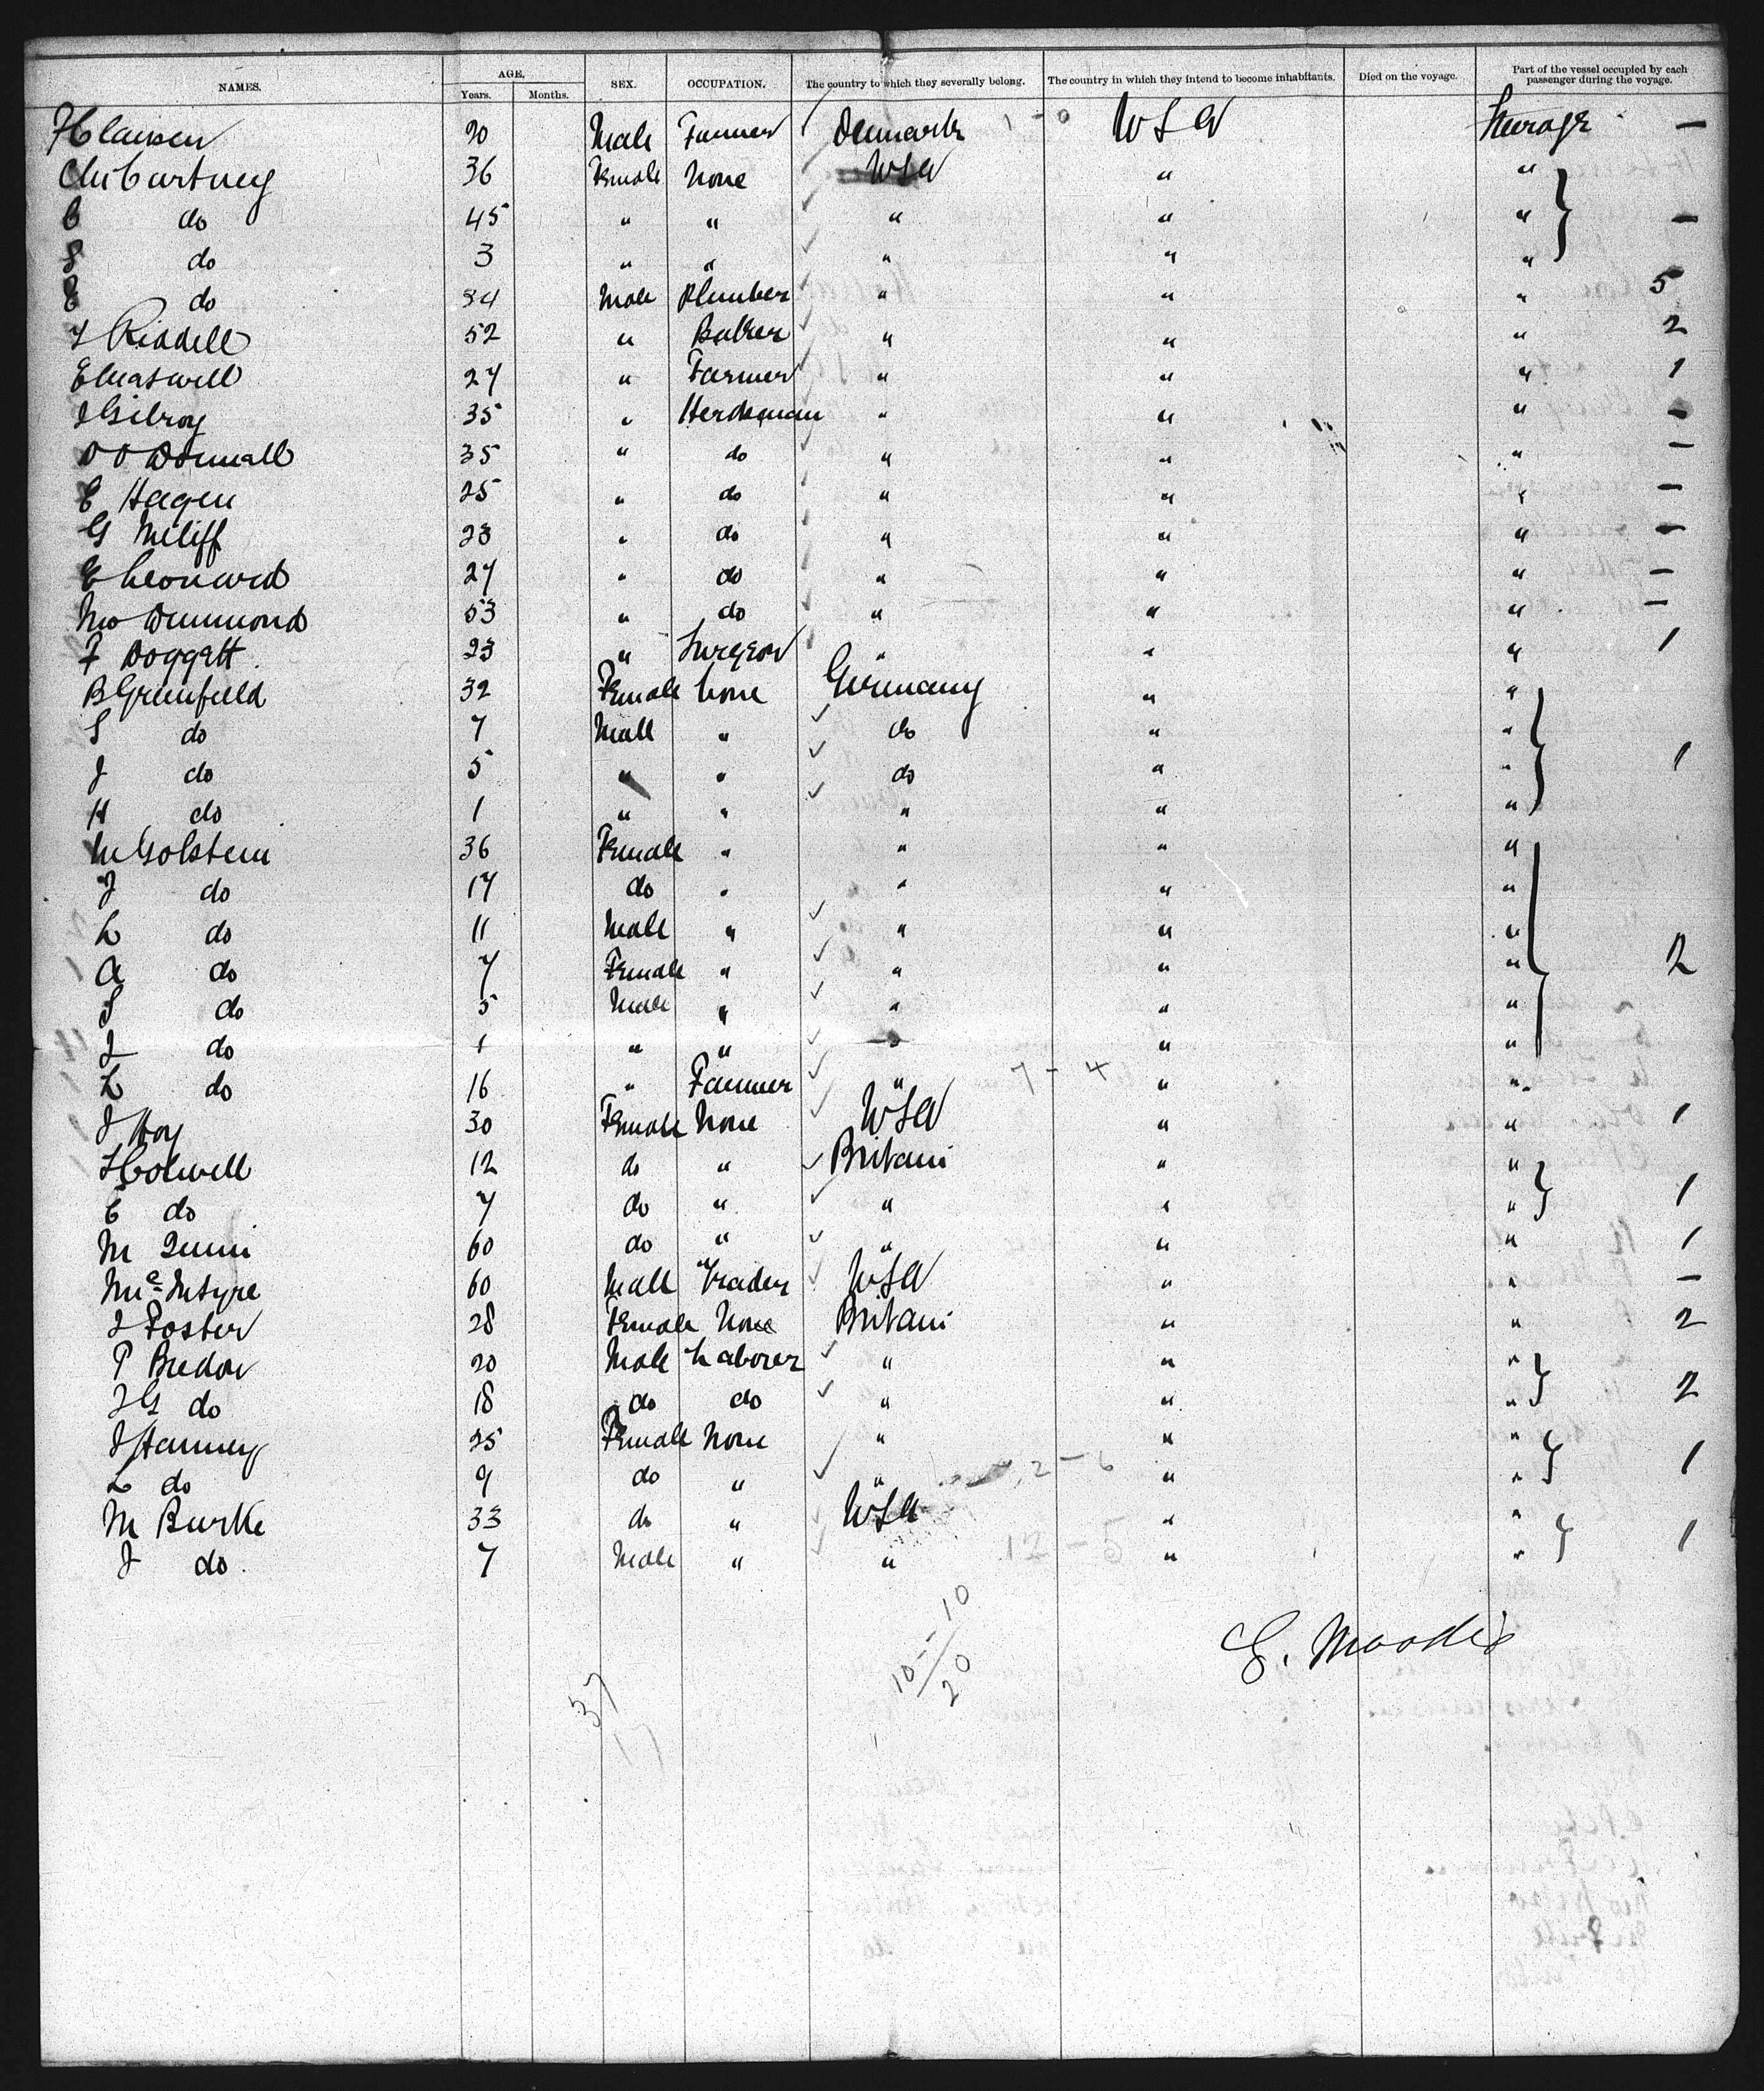 NAMES. AGE. Years. Months. SEX. OCCUPATION. The country to which they severally belong. The country in which they intend to become inhabitants. Died on the voyage. Part of the vessel occupied by each passenger during the voyage.
20 Male Farmer Denmark 1 - 0 USA Steerage —
36 Female None USA " "
C do 45 " " " " " —
S do 3 " " " " "
E do 34 Male Plumber " " " 5
J Riddell 52 " Baker " " " 2
E Maswell 27 " Farmer " " " 1
J Gilroy 35 " Herdsman " " " —
D O Donnall 35 " do " " " —
E Hagen 25 " do " " " —
G 23 " do " " " —
E Leonard 27 " do " " " —
Wm Drummond 53 " do " " " —
F Doggett 23 " Surgeon " " " 1
B Greenfield 32 Female None Germany " "
S do 7 Male " do " "
J do 5 " " do " " 1
H do 1 " " " " "
M Golstein 36 Female " " " "
J do 17 do " " " "
L do 11 Male " " " "
A do 7 Female " " " " 2
S do 5 Male " " " "
J do 1 " " " " "
L do 16 " Farmer " 7 - 4 " "
J Hoy 30 Female None USA " " 1
12 do " Britain " "
E do 7 do " " " " 1
M Quinn 60 do " " " " 1
McIntyre 60 Male Trader USA " " —
J Foster 28 Female None Britain " " 2
P 20 Male Laborer " " "
J G do 18 do do " " " 2
J Hanney 25 Female None " " "
L do 9 do " " 2 - 6 " " 1
M Burke 33 do " USA " "
J do 7 Male " " 12 - 5 " " 1
10 - 10
20
37
17
E. Moodie